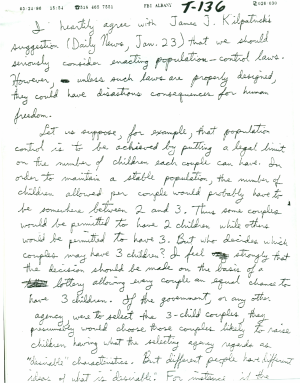 03/26/96 15:54 518 465 7551 FBI ALBANY T-136 028/030
I heartily agree with James J. Kilpatrick's
suggestion (Daily News, Jan. 23) that we should
seriously consider enacting population-control laws.
However, unless such laws are properly designed,
they could have disastrous consequences for human
freedom.
Let us suppose, for example, that population
control is to be achieved by putting a legal limit
on the number of children each couple can have. In
order to maintain a stable population, the number of
children allowed per couple would probably have to
be somewhere between 2 and 3. Thus some couples
would be permitted to have 2 children while others
would be permitted to have 3. But who decides which
couples may have 3 children? I feel strongly that
the decision should be made on the basis of a
lottery allowing every couple an equal chance to
have 3 children. If the government, or any other
agency were to select the 3-child couples, they
presumably would choose those couples likely to raise
children having what the selecting agency regards as
"desirable" characteristics. But different people have different
ideas of what is desirable. For instance if the